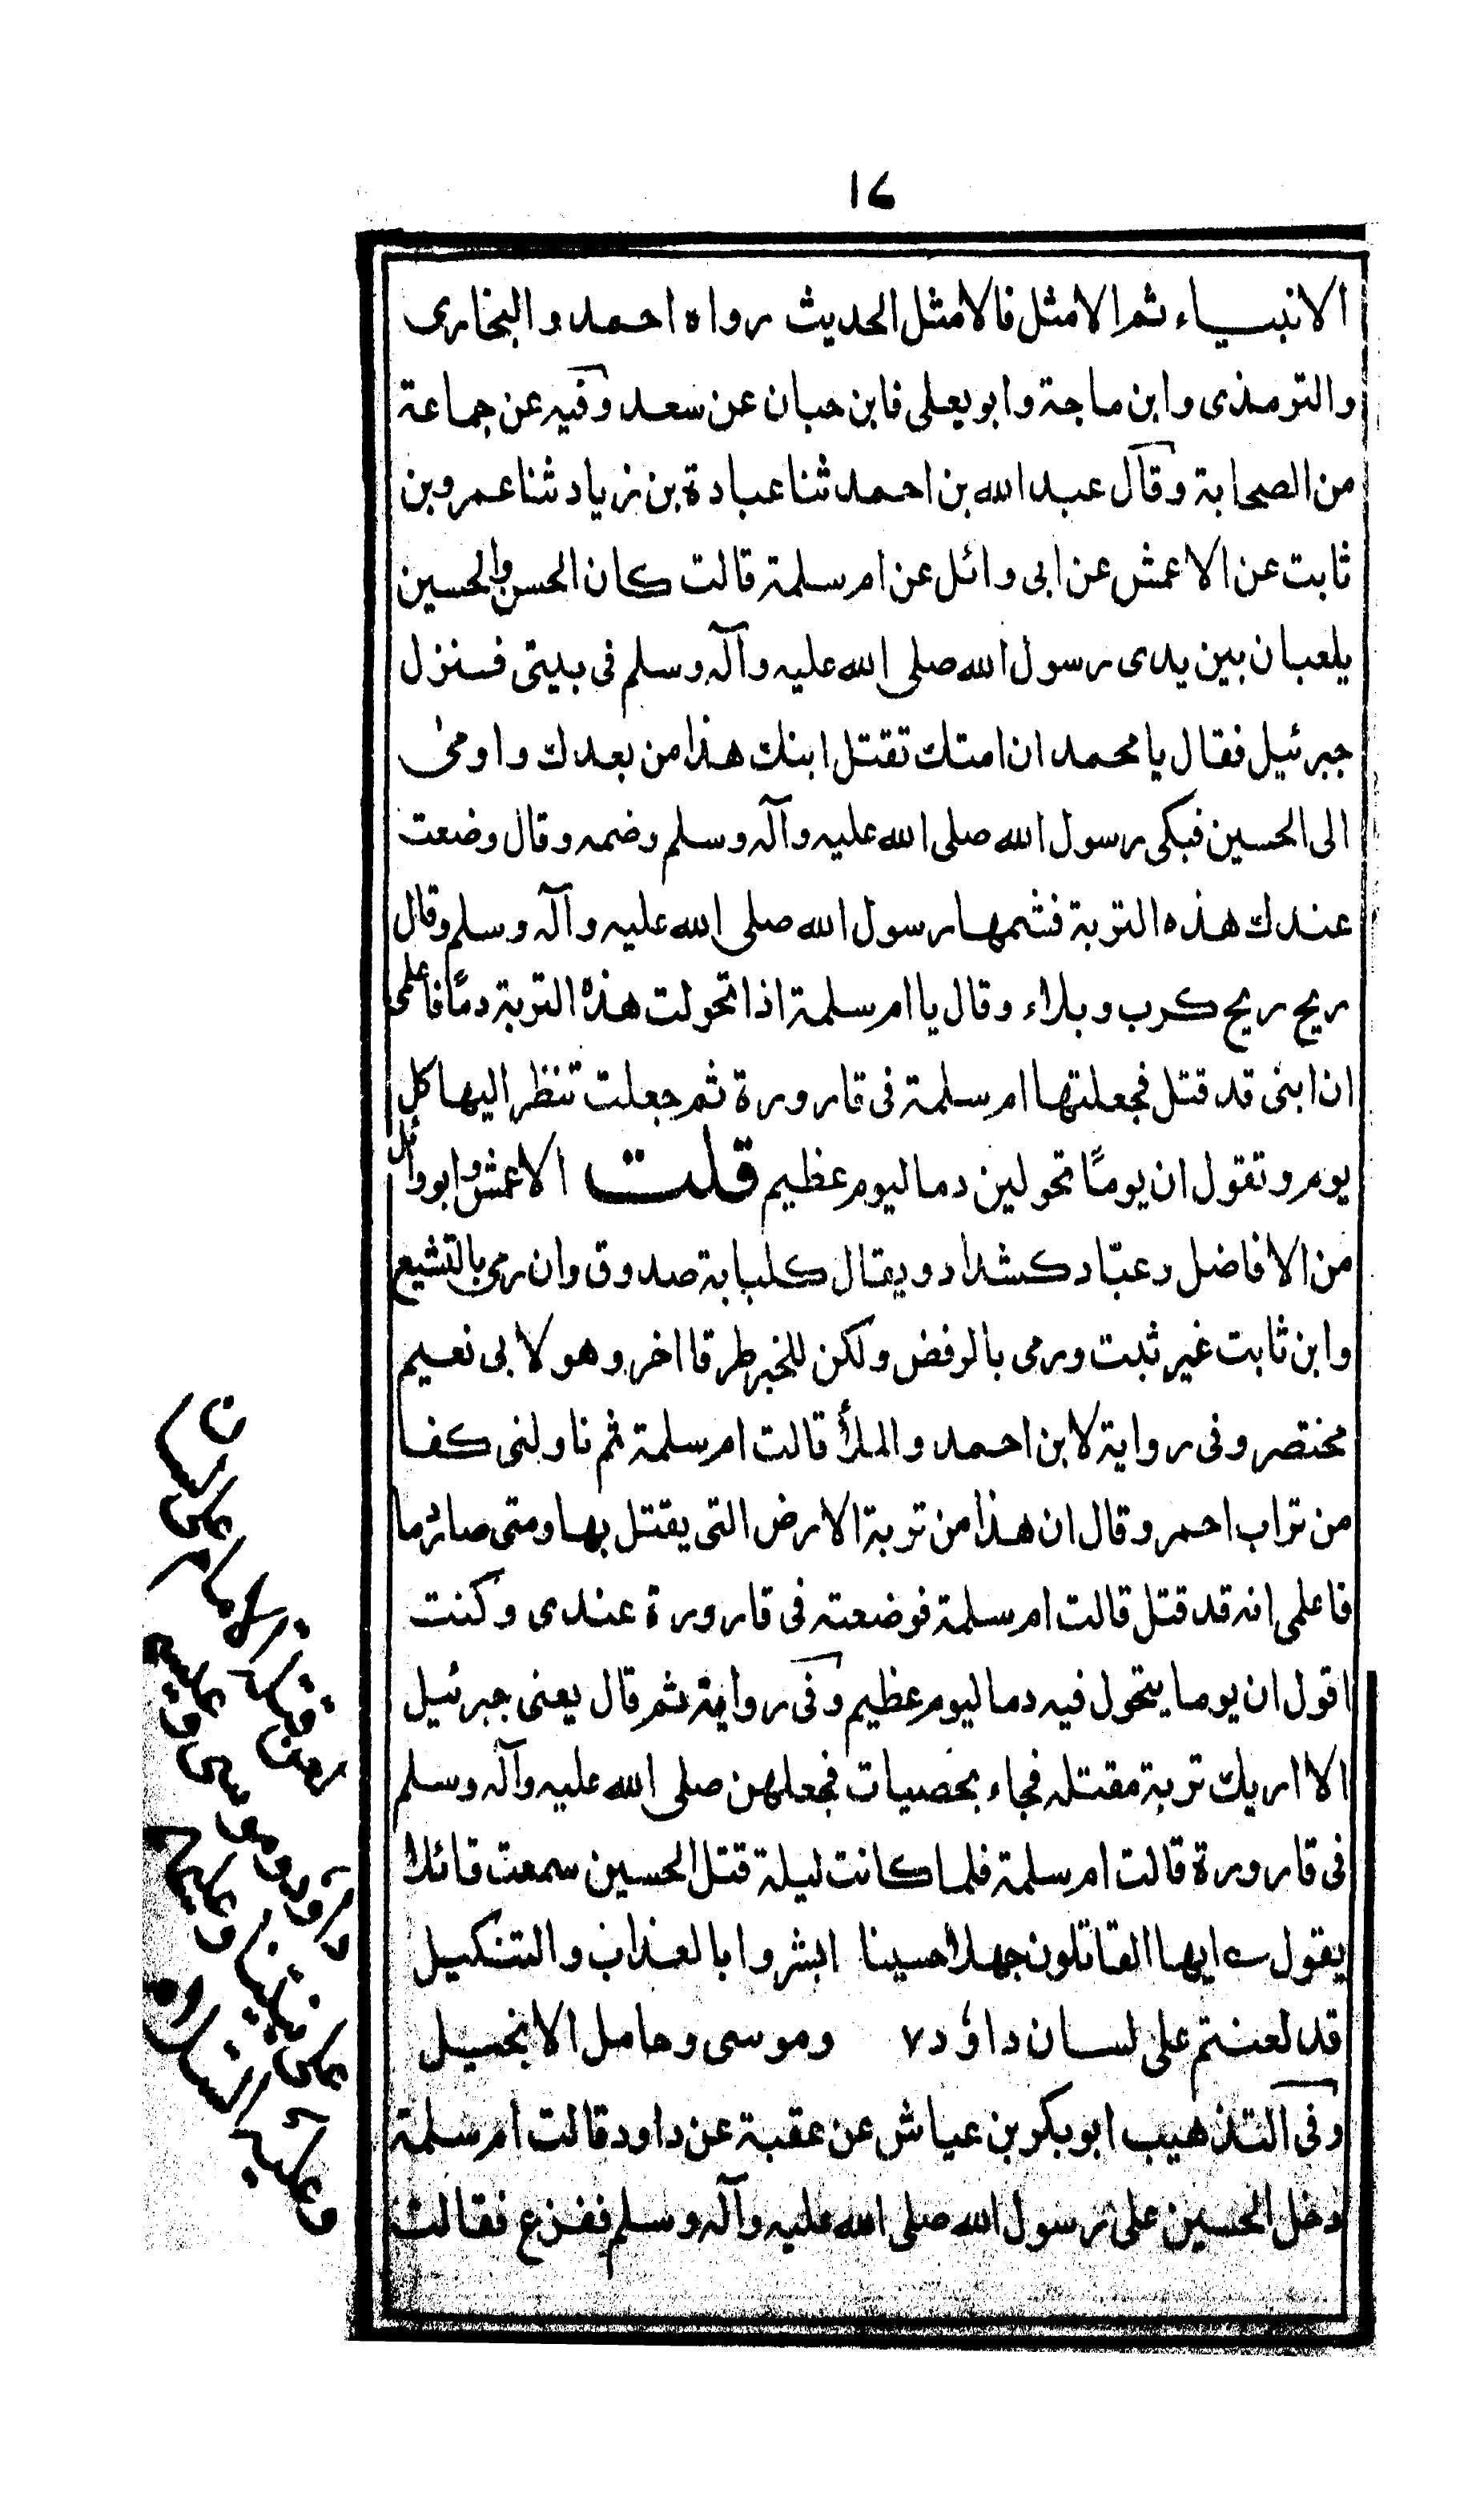 ١٧
الانبياء ثم الامثل فالامثل الحديث رواه احمد والبخارى
والترمذى وابن ماجة وابو يعلى فابن حبان عن سعد وفيه عن جماعة
من الصحابة وقال عبد الله بن احمد ثنا عبادة بن زياد ثنا عمرو بن
ثابت عن الاعمش عن ابى وائل عن ام سلمة قالت كان الحسن والحسين
يلعبان بين يدى رسول الله صلى الله عليه وآله وسلم فى بيتى فنزل
جبرئيل فقال يا محمد ان امتك تقتل ابنك هذا من بعدك واومىٰ
الى الحسين فبكى رسول الله صلى الله عليه وآله وسلم وضمه وقال وضعت
عندك هذه التربة فشمها رسول الله صلى الله عليه وآله وسلم وقال
ريح ريح كرب وبلاء وقال يا ام سلمة اذا تحولت هذه التربة دمًا فاعلمى
ان ابنى قد قتل فجعلتها ام سلمة فى قارورة ثم جعلت تنظر اليها كل
يوم وتقول ان يومًا تحولين دما ليوم عظيم قلت الاعمش وابو وائل
من الافاضل وعبّاد كشداد ويقال كلبابة صدوق وان رمى بالتشيع
وابن ثابت غير ثبت ورمى بالرفض ولكن للخبر طرقا اخر وهو لابى نعيم
مختصر وفى رواية لابن احمد والملأ قالت ام سلمة ثم ناولنى كفا
من تراب احمر وقال ان هذا من تربة الارض التى يقتل بها ومتى صار دما
فاعلمى انه قد قتل قالت ام سلمة فوضعته فى قارورة عندى وكنت
اقول ان يوما يتحول فيه دما ليوم عظيم وفى رواية ثم قال يعنى جبرئيل
الا اريك تربة مقتله فجاء بحصيات فجعلهن صلى الله عليه وآله وسلم
فى قارورة قالت ام سلمة فلما كانت ليلة قتل الحسين سمعت قائلا
يقول ؎ ايها القاتلون جهلا حسينا ابشروا بالعذاب والتنكيل
قد لعنتم على لسان داؤد ٧ وموسى وحامل الانجيل
وفى التذهيب ابو بكر بن عياش عن عقبة عن داود قالت ام سلمة
دخل الحسين على رسول الله صلى الله عليه وآله وسلم ففزع فقالت